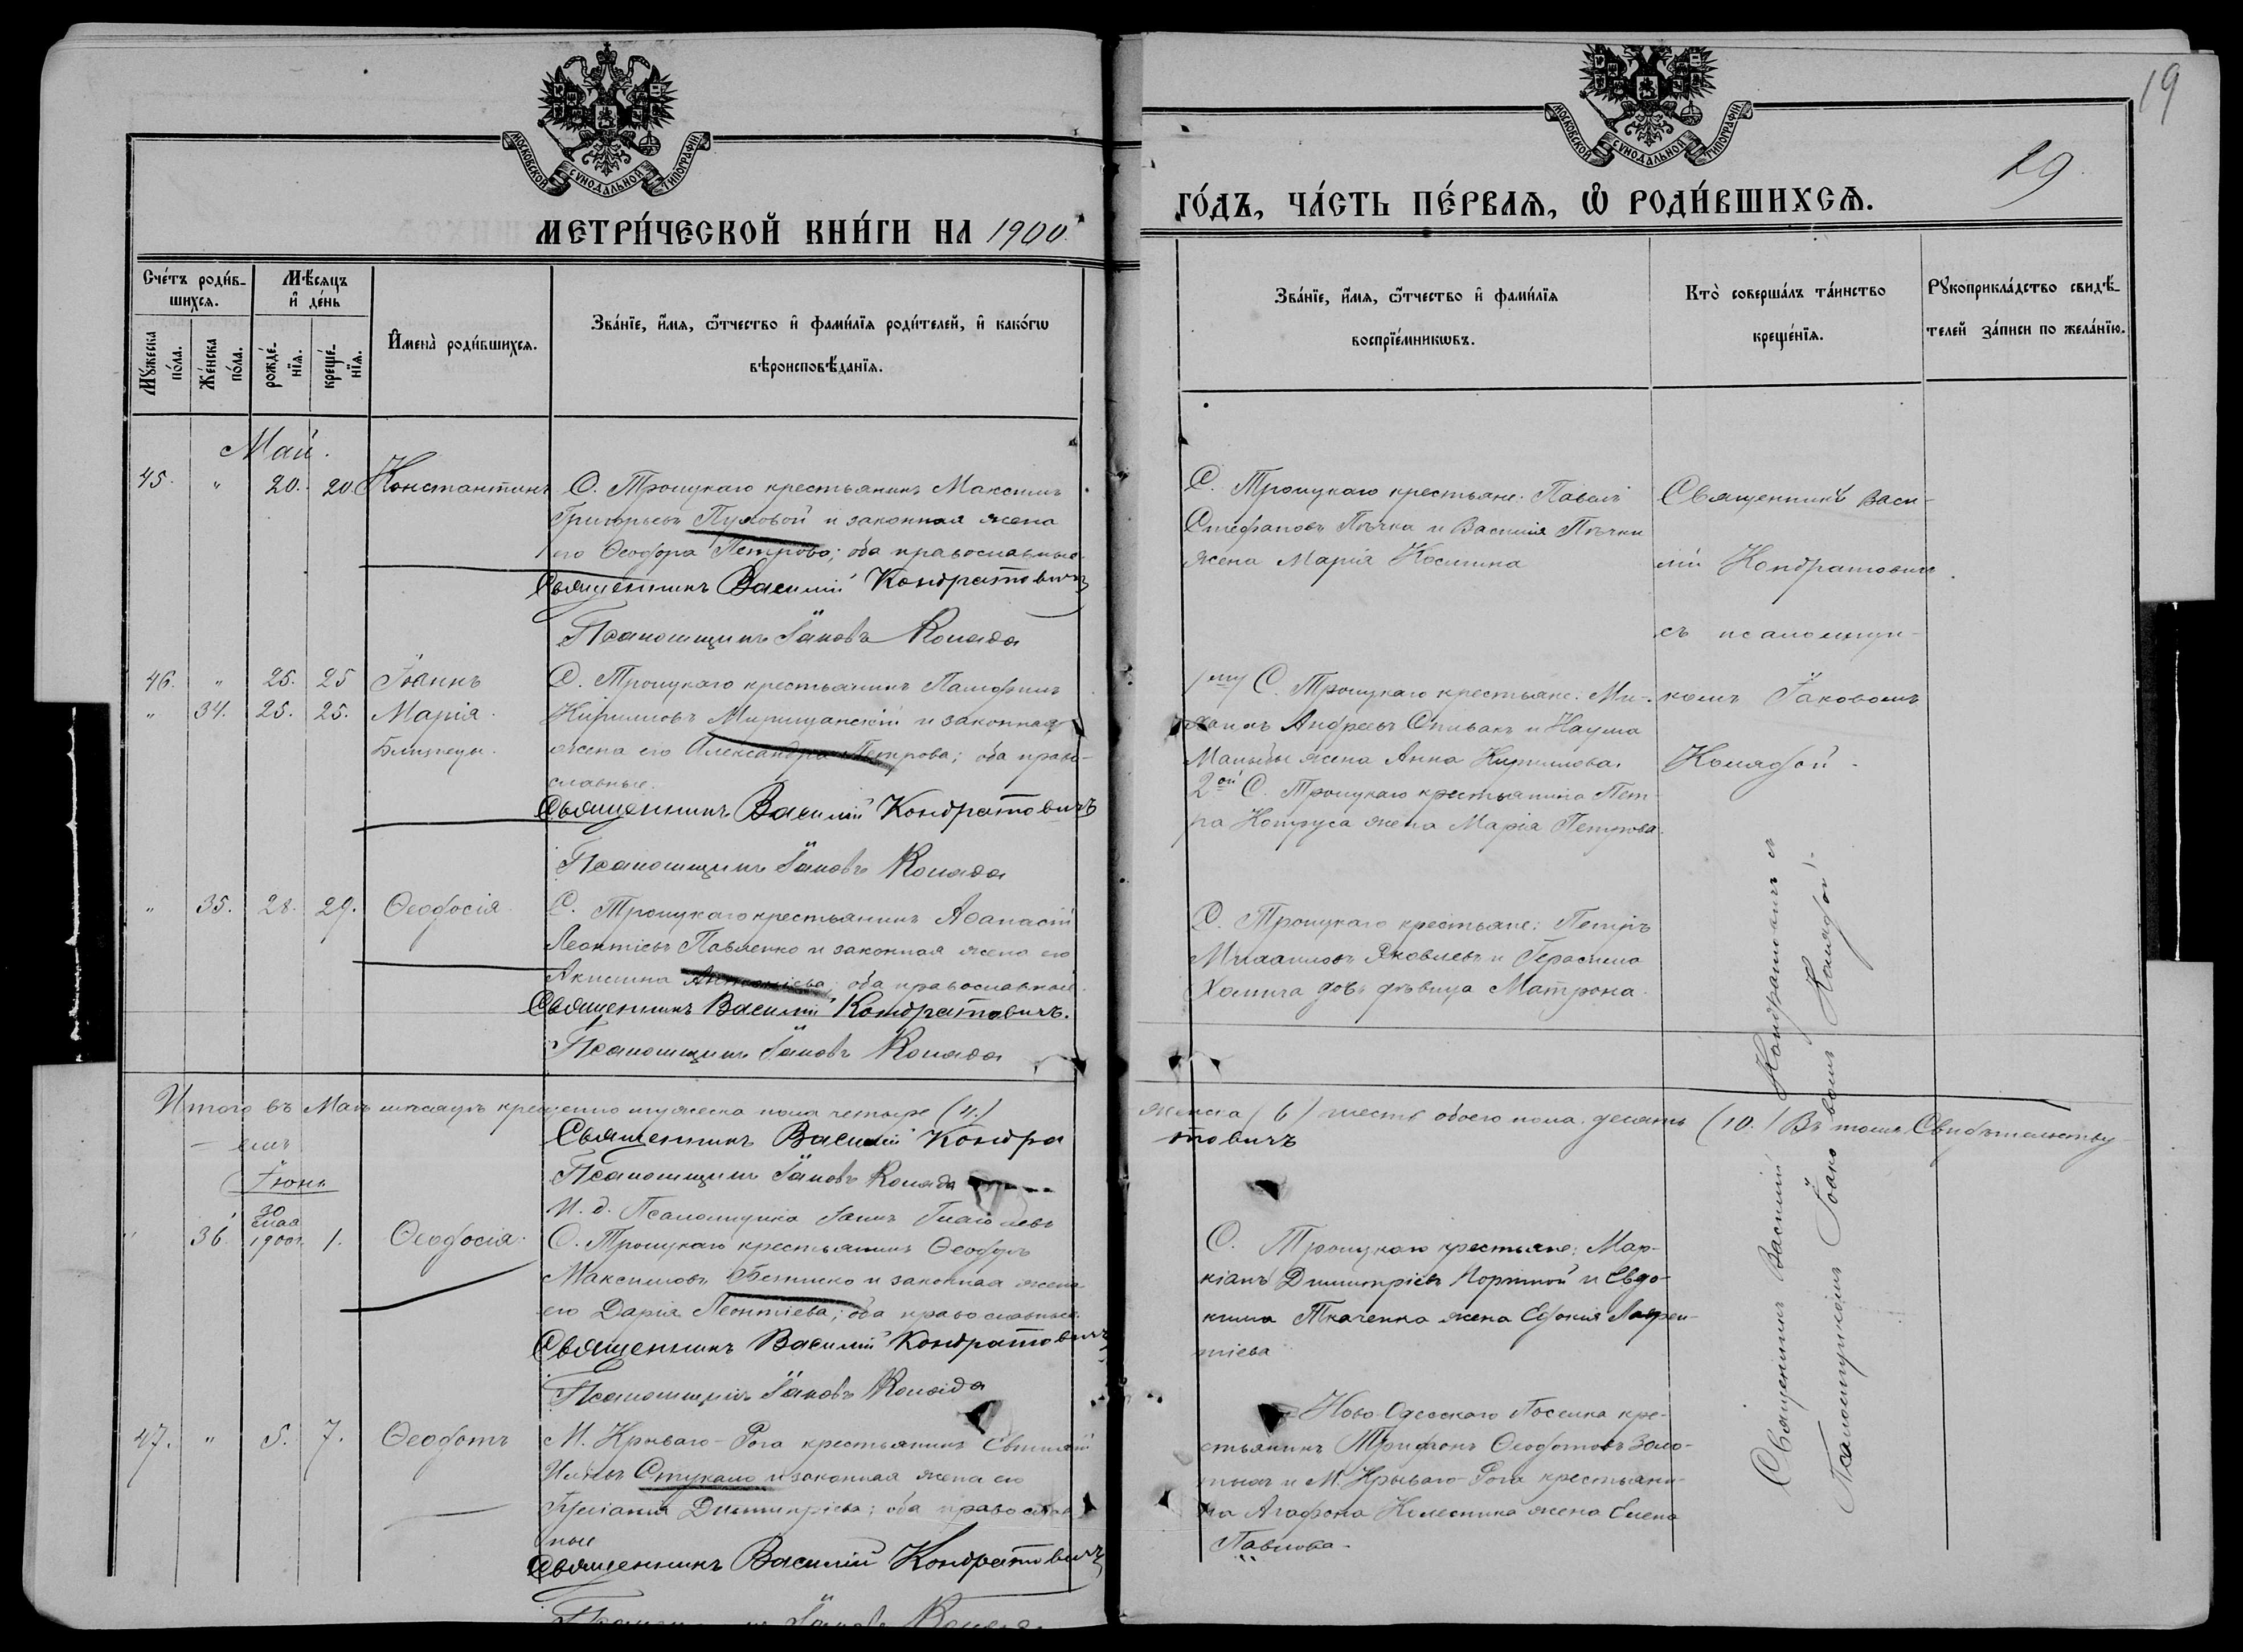 19
29
МОСКОВСКОЙ СѴНОДАЛЬНОЙ ТИПОГРАФІИ
МОСКОВСКОЙ СѴНОДАЛЬНОЙ ТИПОГРАФІИ
МЕТРИ́ЧЕСКОЙ КНИ́ГИ НА 1900
ГО́ДЪ, ЧА́СТЬ ПЕ́РВАѦ, Ѡ҆ РОДИ́ВШИХСѦ.
Сче́тъ роди́в-
шихсѧ.
Мꙋ́жеска по́ла.
Же́нска по́ла.
Мѣ́сѧцъ
и҆ де́нь
рожде́-
нїѧ.
креще́-
нїѧ.
И҆мена̀ роди́вшихсѧ.
Зва́нїе, и҆́мѧ, ѻ҆́тчество и҆ фами́лїѧ роди́телей, и҆ како́гѡ
вѣроисповѣ́данїѧ.
Зва́нїе, и҆́мѧ, ѻ҆́тчество и҆ фами́лїѧ
воспрїе́мникѡвъ.
Кто̀ соверша́лъ та́инство
креще́нїѧ.
Рꙋкоприкла́дство свидѣ́-
телей за́писи по жела́нїю.
Май.
45. " 20. 20. Константинъ
С. Троицкаго крестьянинъ Максимъ
Григорьевъ Пуховой и законная жена
его Ѳеодора Петрова; оба православные.
Священникъ Василій Кондратовичъ
Псаломщикъ Іаковъ Коляда
С. Троицкаго крестьяне: Павелъ
Стефановъ Пѣчка и Василія Пѣчки
жена Марія Косьмина
Священникъ Васи-
лій Кондратовичъ
съ псаломщи-
комъ Іаковомъ
Колядой.
46. " 25. 25 Іоаннъ
" 34. 25. 25. Марія.
Близнецы.
С. Троицкаго крестьянинъ Памфилъ
Кирилловъ Миргицанскій и законная
жена его Александра Петрова; оба право-
славные.
Священникъ Василій Кондратовичъ
Псаломщикъ Іаковъ Коляда
С. Троицкаго крестьяне: Ми-
хаилъ Андреевъ Спивакъ и Наума
жена Анна Кириллова.
2ой С. Троицкаго крестьянина Пет-
ра Котруса жена Марія Петрова.
" 35. 28. 29. Ѳеодосія.
С. Троицкаго крестьянинъ Аѳанасій
Леонтіевъ Павленко и законная жена его
Акилина Антоніева; оба православные.
Священникъ Василій Кондратовичъ.
Псаломщикъ Іаковъ Коляда
С. Троицкаго крестьяне: Петръ
Михаиловъ Яковлевъ и Герасима
Хомича дочь дѣвица Матрона.
Итого въ Маѣ мѣсяцѣ крещенно мужеска пола четыре (4.)
женска (6) шесть обоего пола десять (10.) Въ томъ Свидѣтельству-
– емъ
Священникъ Василій Кондра
товичъ
Псаломщикъ Іаковъ Коляда
И. д. Псаломщика
Іюнь
" 36. 30 мая 1900 г. 1. Ѳеодосія.
С. Троицкаго крестьянинъ Ѳеодоръ
Максимовъ и законная жена
его Дарія Леонтіева; оба православные.
Священникъ Василій Кондратовичъ
Псаломщикъ Іаковъ Коляда
С. Троицкаго крестьяне: Мар-
кіанъ Димитріевъ Портной и Евдо-
кима Ткаченка жена Лаврен-
тіева
47. " 5. 7. Ѳеодотъ
М. Криваго-Рога крестьянинъ
Ильинъ Стукало и законная жена его
Іуліанія Димитріева; оба православ
ные
Священникъ Василій Кондратовичъ
Ново-Одесскаго Поселка кре-
стьянинъ Трифонъ Ѳеодотовъ Золо-
тыхъ и М. Криваго-Рога крестьяни-
на Агафона Колесника жена Елена
Павлова.
Священникъ Василій Кондратовичъ съ
Псаломщикомъ Іаковомъ Колядой.